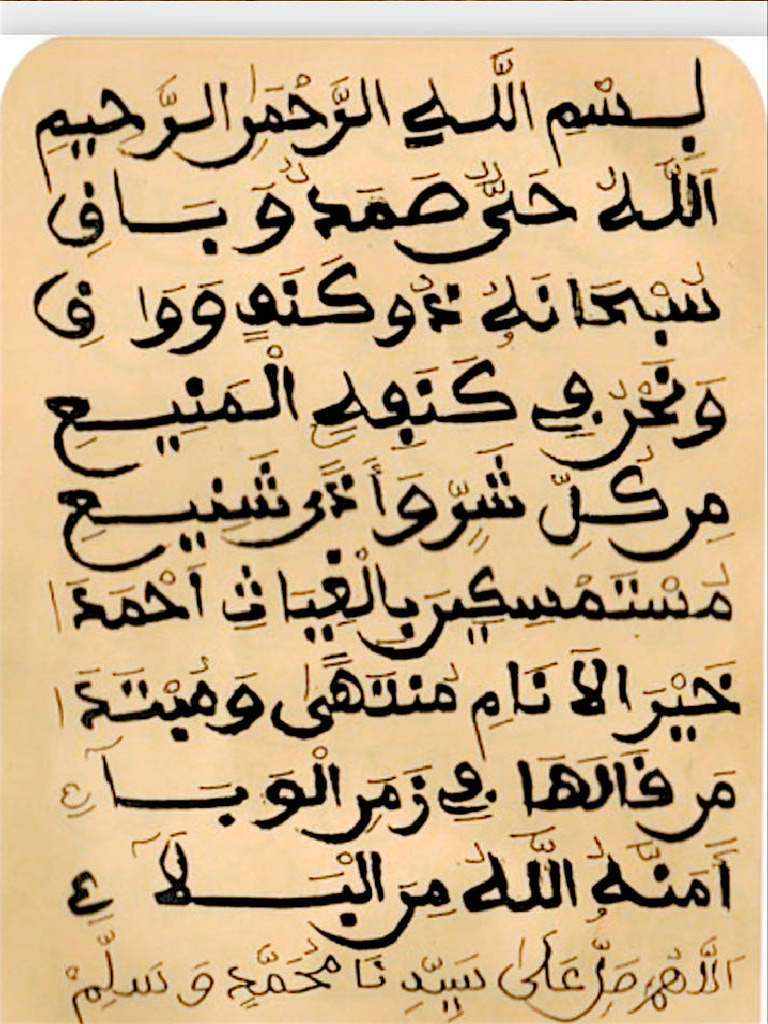 بِسْمِ اللَّهِ الرَّحْمَنِ الرَّحِيمِ
اَللَّهُ حَيٌّ صَمَدٌ وَبَاقِي
سُبْحَانَهُ ذُو كَنَفٍ وَوَاقِي
وَنَحْنُ فِي كَنَفِهِ الْمَنِيعِ
مِن كُلِّ شَرٍّ وَأَذًى شَنِيعِ
مُسْتَمْسِكِينَ بِالْغِيَاثِ أَحْمَدَا
خَيْرَ الْأَنَامِ مُنْتَهًى وَمُبْتَدَا
مَن قَالَهَا فِي زَمَنِ الْوَبَاءِ
أَمَّنَهُ اللَّهُ مِنَ الْبَلَاءِ
اَللَّهُمَّ صَلِّ عَلَى سَيِّدِنَا مُحَمَّدٍ وَسَلِّمْ